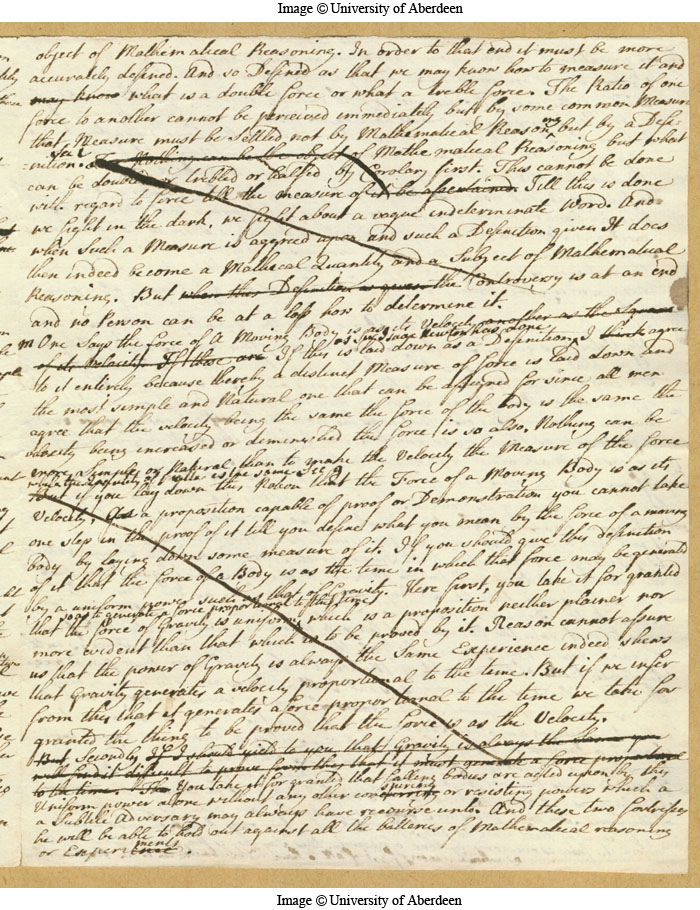 Image © University of Aberdeen
object of Mathematical Reasoning. In order to that end it must be more
accurately defined. And so Defined as that we may know how to measure it and
may know what is a double force or what a treble force. The Ratio of one
force to another cannot be perceived immediately but by some common Measure
that Measure must be settled not by Mathematical Reasoning but by a Defi-
nition. Nothing can be the object of Mathematical Reasoning but what
can be doubled or trebled or halfed by Corolary first. This cannot be done
with regard to force till the measure of it be ascertained. Till this is done
we fight in the dark, we fight about a vague indeterminate word. And
when Such a Measure is aggreed upon and such a Definition given It does
then indeed become a Mathical Quantity and a Subject of Mathematical
Reasoning. But when this Definition is given the Controversy is at an end
and no Person can be at a loss how to determine it.
One Says the force of A Moving Body is as its Velocity another as the Square
as Sir Isaac Newton has done
of its Velocity. If these are If this is laid down as a Definition, I think agree
to it entirely because thereby a distinct Measure of force is laid down and
the most simple and Natural one that can be assigned for since all men
agree that the velocity being the same the force of the body is the same the
velocity being increased or diminished the force is so also. Nothing can be
more Simple or Natural than to make the Velocity the Measure of the force
when the quantity of matter is the same
But if you lay down this Notion that the Force of a Moving Body is as its
Velocity, as a proposition capable of proof or Demonstration you cannot take
one step in the proof of it till you define what you mean by the force of a moving
body by laying down some measure of it. If you should give this definition
of it that the force of a Body is as the time in which that force may be generated
by a uniform power such as that of Gravity. Here first, you take it for granted
so as to generate a force proportional to the time
that the force of Gravity is uniform which is a proposition neither plainer nor
more evident than that which is to be proved by it. Reason cannot assure
us that the power of Gravity is always the Same Experience indeed shews
that Gravity generates a velocity proportional to the time. But if we infer
from this that it generates a force proportional to the time we take for
granted the thing to be proved that the force is as the Velocity.
But Secondly If I should yield to you that Gravity is always the same you
will find it difficult to prove from this that it must generate a force proportional
to the time. You take it for granted that falling bodies are acted upon by this
Uniform power alone without any other conspiring or resisting powers which a
a Subtile Adversary may always have recourse unto. And these two
he will be able to hold out against all the batteries of Mathematical reasoning
or Experiments.
Image © University of Aberdeen